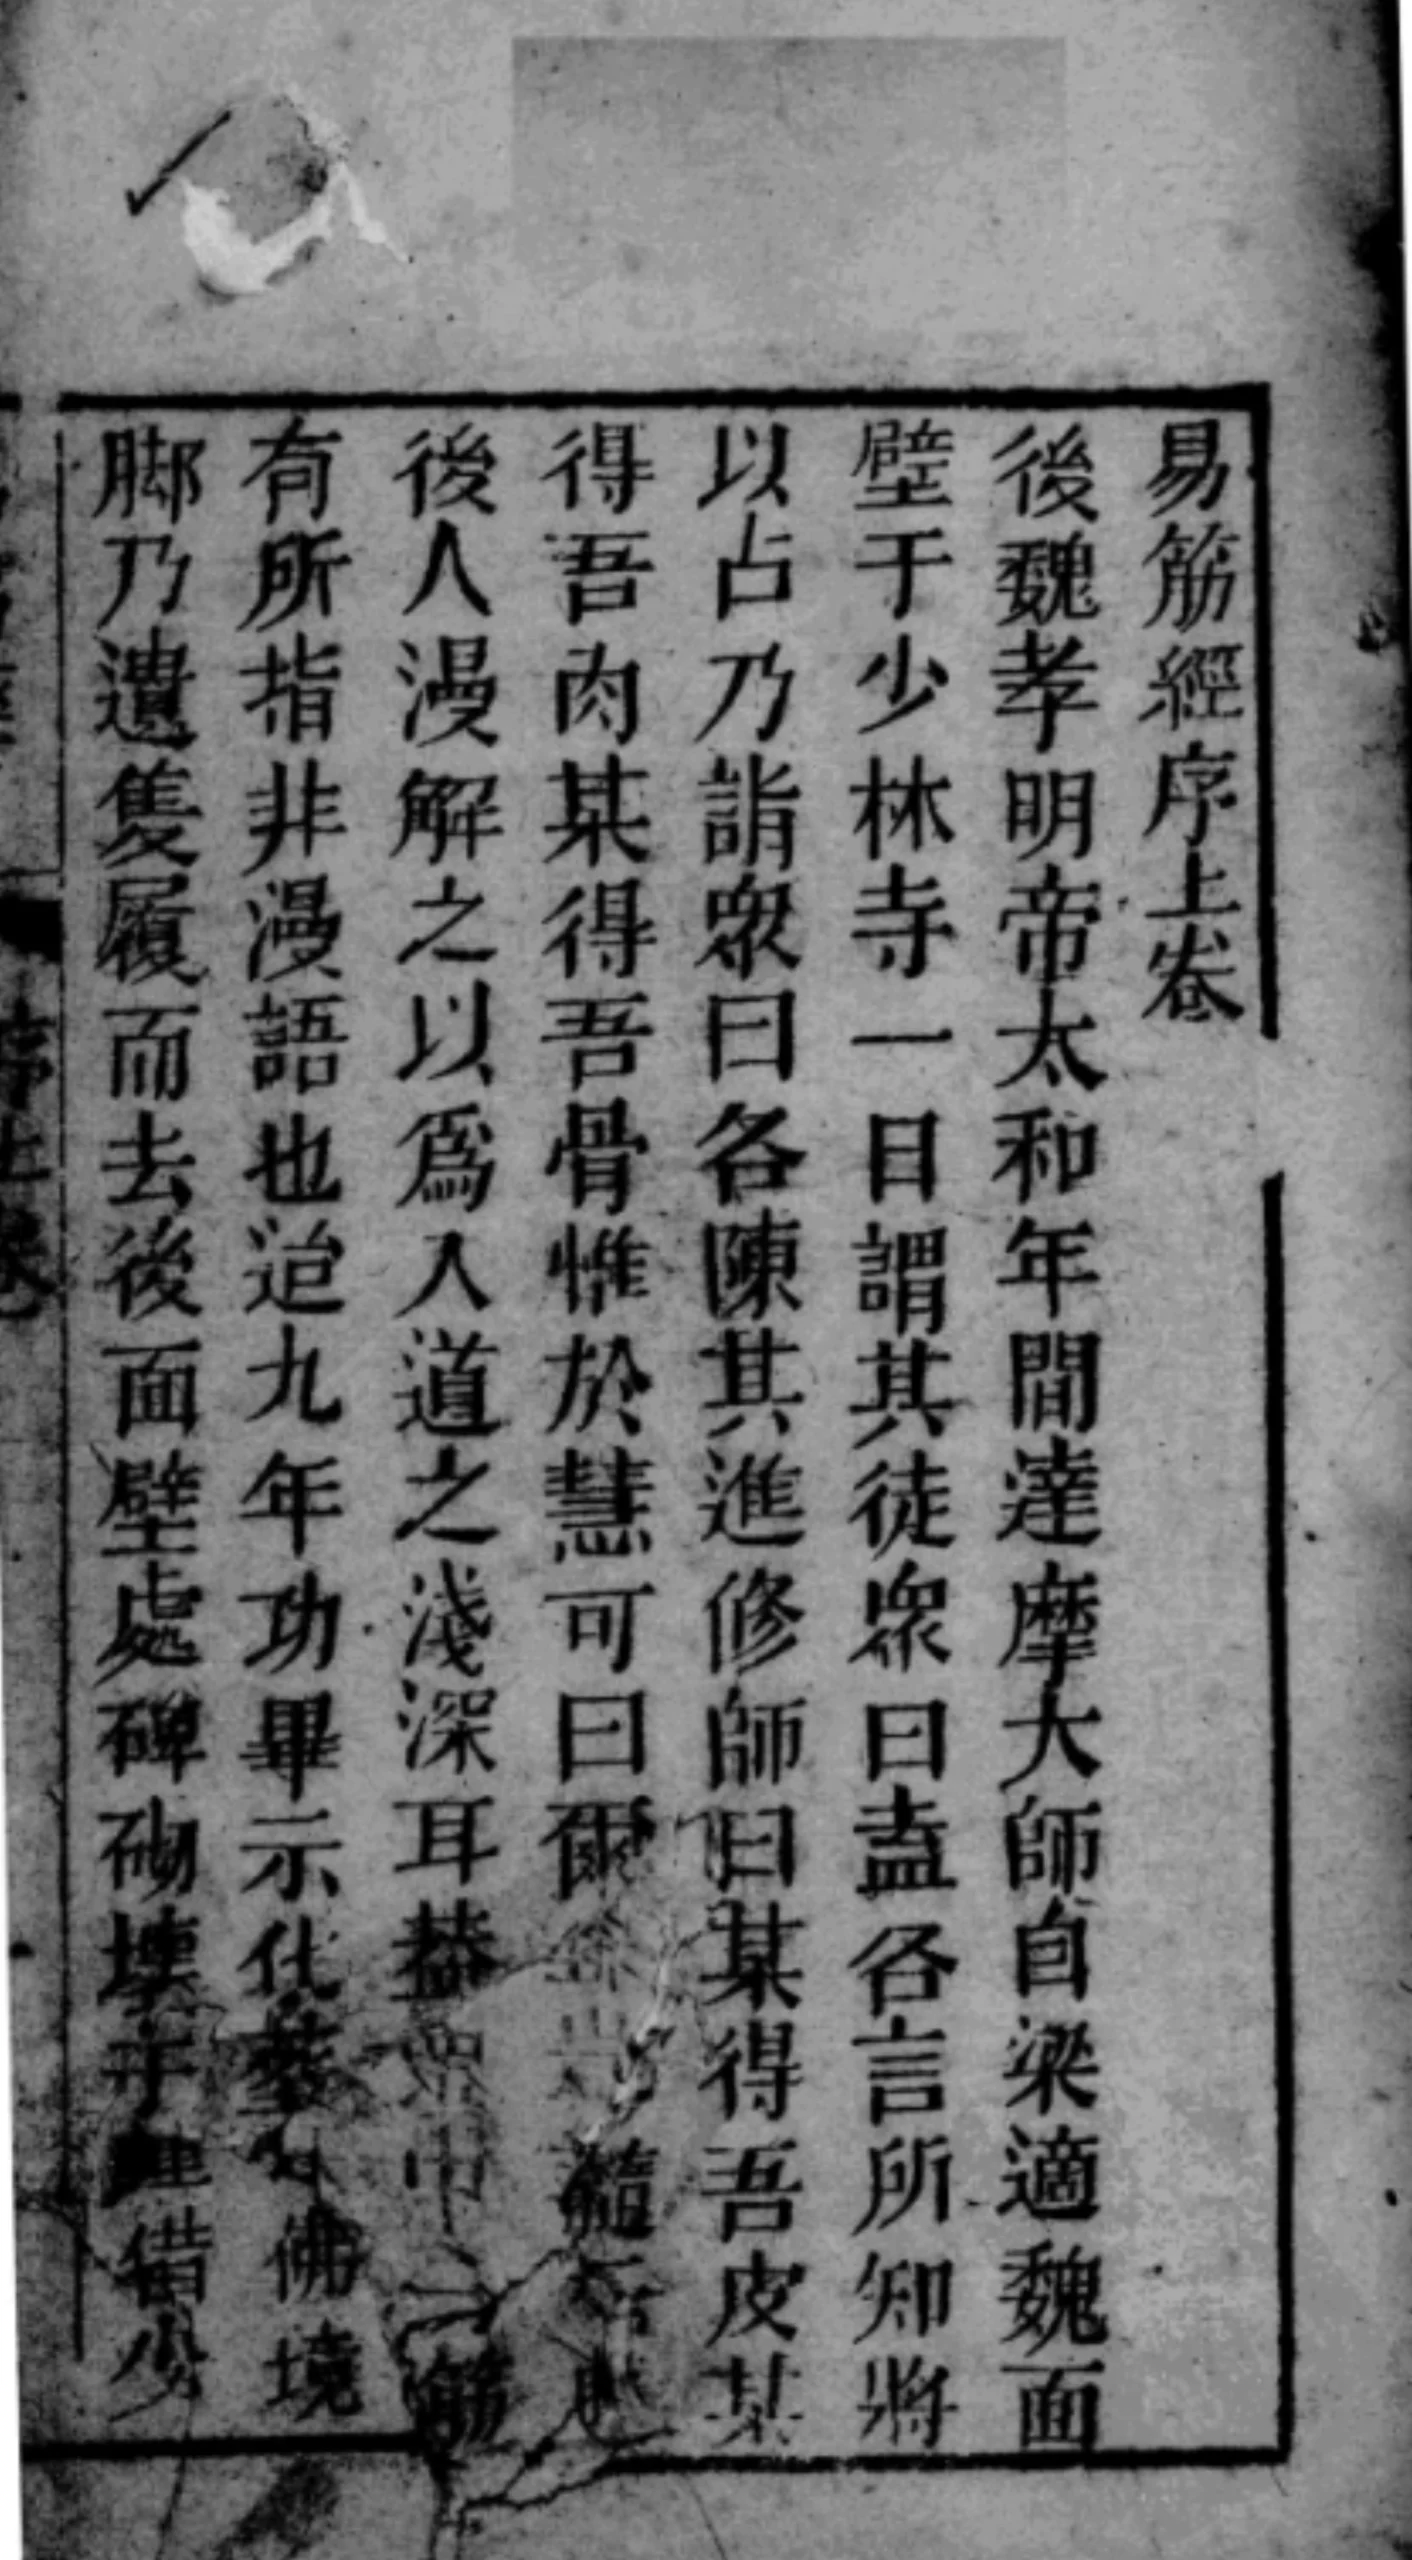 易筋經序上卷
後魏孝明帝太和年間達摩大師自梁適魏面
壁于少林寺一日謂其徒眾曰盍各言所知將
以占乃詣眾曰各陳其進修師曰某得吾皮某
得吾肉某得吾骨惟於慧可曰爾髓
後人漫解之以爲入道之淺深耳葢筋
有所指非漫語也迨九年功畢示化葬佛境
脚乃遺隻履而去後面壁處碑砌壞于少
序上卷